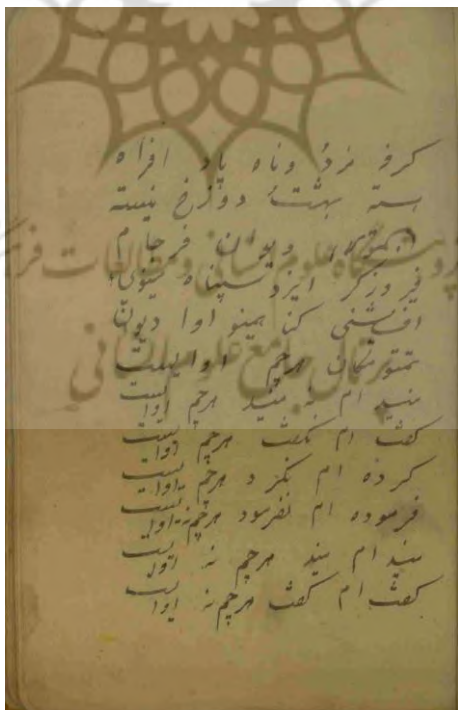 کرفه مزد وناه پاد افراه
بسته بهشت دوزخ نیسته
دیوان فرجام
فیروزگر ایزد سپناه مینوی
کنا مینو اوا دیوان
هرچم اوایست
منید ام نه منید هرچم اوایست
گفت ام نگفت هرچم اوایست
کرده ام نکرد هرچم اوایست
فرموده ام نفرمود هرچم اوایست
منید ام منید هرچم نه اوایست
گفت ام گفت هرچم نه اوایست
پژوهشگاه علوم انسانی و مطالعات فرهنگی
پرتال جامع علوم انسانی